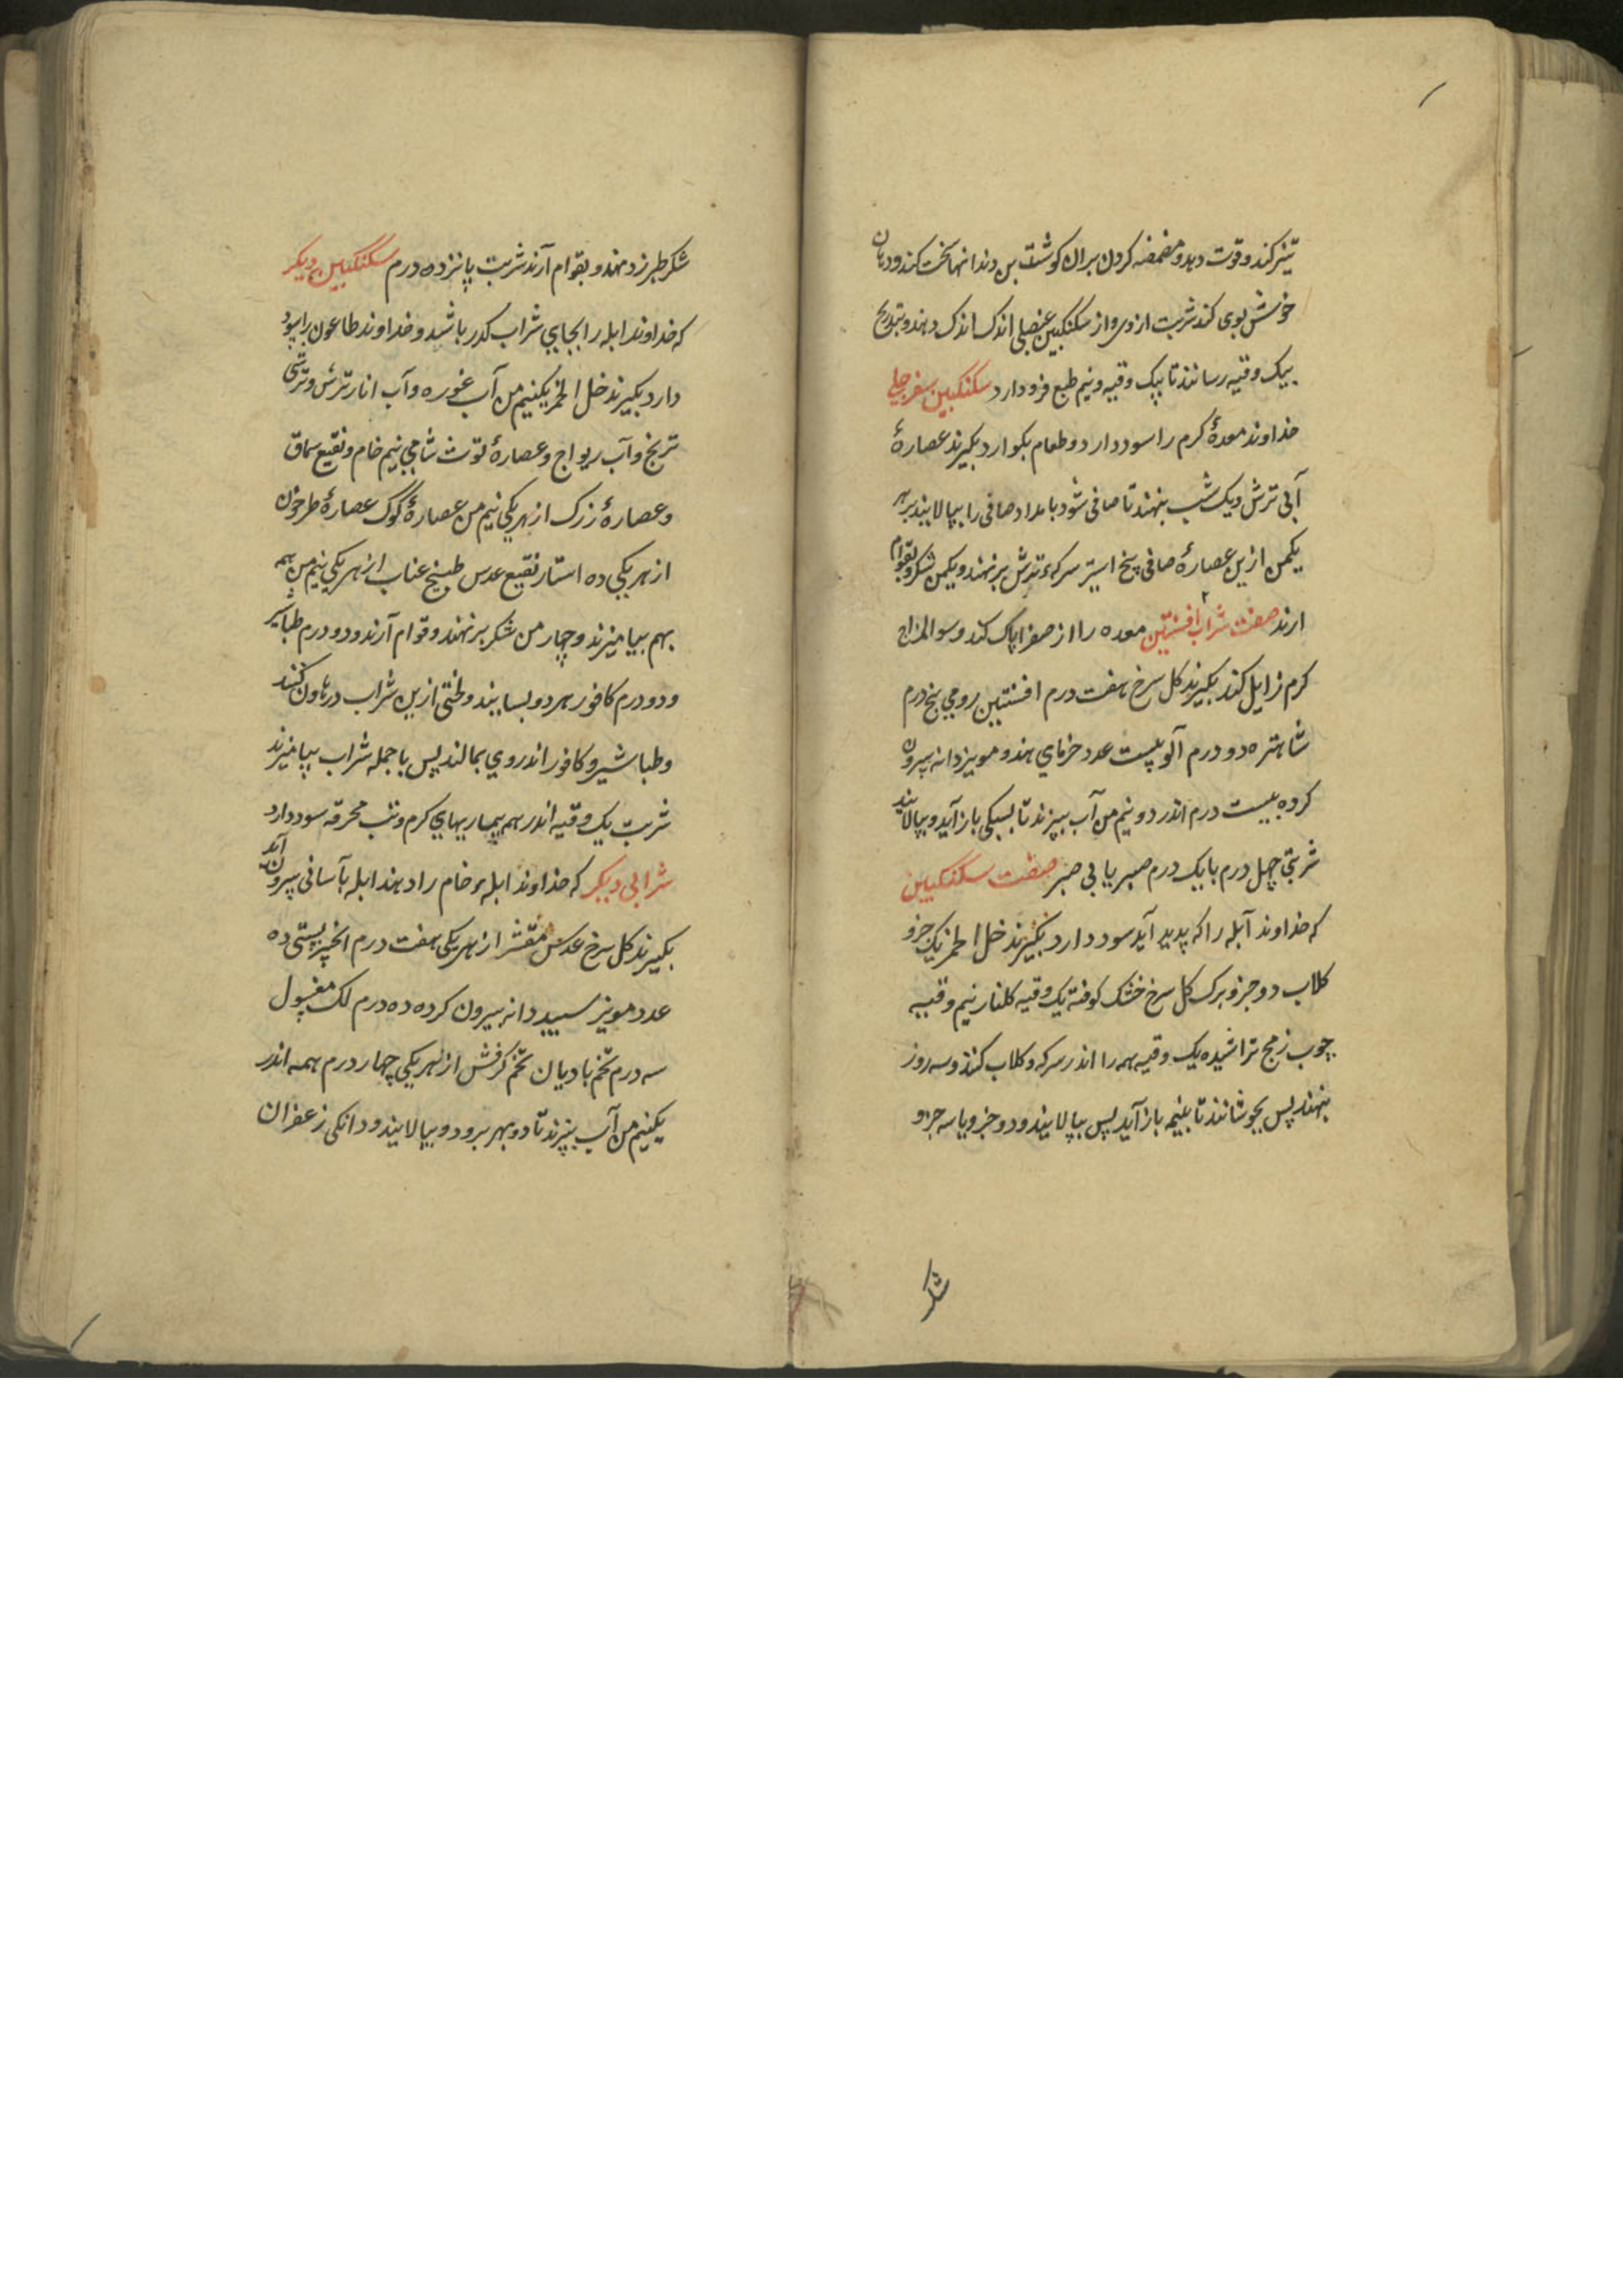 تیز کند و قوت دهد و مضمضه کردن بران کوشت بن دندانها سخت کند و دهان
خوش بوی کند شربت ازوی و از سکنکبین عنصلی اندک اندک دهند و بتدریج
بیک وقیه رسانند تا بیک وقیه و نیم طبع فرو دارد سکنکبین سفرجلی
خداوند معدۀ کرم را سود دارد و طعام بکوارد بکیرند عصارۀ
آبی ترش و یک شب بنهند تا صافی شود بامداد صافی را بپالایند بهر
یکمن ازین عصارۀ صافی پنج استیر سرکه ترش برنهند و یکمن شکر و بقوام
ارند صفت شراب افسنتین معده را از صفرا پاک کند و سو المزاج
کرم زایل کند بکیرند کل سرخ هفت درم افسنتین رومی پنج درم
شاهتره دو درم آلو بیست عدد خرمای هندو مویز دانه بیرون
کرده بیست درم اندر دو نیم من آب بپزند تا بسیکی باز آید و بپالایند
شربتی چهل درم با یک درم صبر یا بی صبر صفت سکنکبین
که خداوند آبله را که پدید آید سود دارد بکیرند خل الخمر یک جزو
کلاب دو جزو برک کل سرخ خشک کوفته یک وقیه کلنار نیم وقیه
چوب زمج تراشیده یک وقیه همه را اندر سرکه و کلاب کنند و سه روز
بنهند پس بجوشانند تا بنیمه باز آید پس بپالایند و دو جزو یا سه جزو
شکر
شکر طبرزد نهند و بقوام آرند شربت پانزده درم سکنکبین دیکر
که خداوند ابله را بجای شراب کدر باشد و خداوند طاعون را سود
دارد بکیرند خل الخمر یکنیم من آب غوره و آب انار ترش و ترشی
ترنج و آب ریواج و عصارۀ توت شامی نیم خام و نقیع سماق
و عصارۀ زرک از هر یکی نیم من عصارۀ کوک عصارۀ طرخون
از هر یکی ده استار نقیع عدس طبیخ عناب از هر یکی نیم من همه
بهم بیامیزند و چهار من شکر برنهند و قوام آرند و دو درم طباشیر
و دو درم کافور هر دو بسایند و لختی ازین شراب در هاون کنند
و طباشیر و کافور اندر وی بمالند پس با جمله شراب بیامیزند
شربت یک وقیه اندر همه بیماریهای کرم و تب محرقه سود دارد
شرابی دیکر که خداوند ابله خام را دهند ابله بآسانی بیرون آید
بکیرند کل سرخ عدس مقشر از هر یکی هفت درم انجیر بستی ده
عدد مویز سپید دانه بیرون کرده ده درم لک مغسول
سه درم تخم بادیان تخم کرفش از هر یکی چهار درم همه اندر
یکنیم من آب بپزند تا دو بهر برود و بپالایند و دانکی زعفران